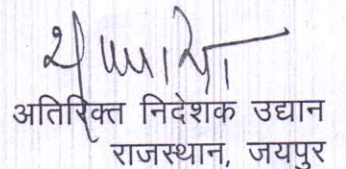 अतिरिक्त निदेशक उद्यान
राजस्थान, जयपुर